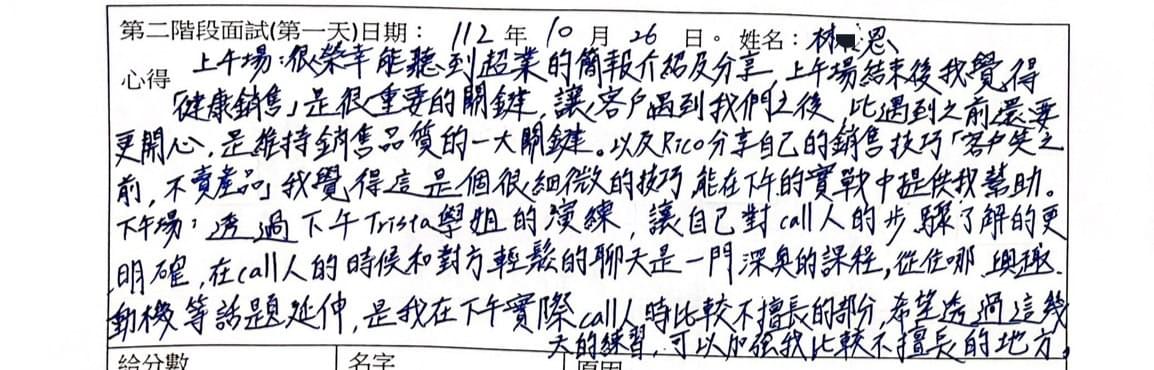 第二階段面試(第一天)日期：112年10月26日。姓名：林 恩
心得 上午場：很榮幸能聽到超業的簡報介紹及分享，上午場結束後我覺得
「健康銷售」是很重要的關鍵，讓客戶遇到我們之後，比遇到之前還要
更開心，是維持銷售品質的一大關鍵。以及Rico分享自己的銷售技巧「客戶笑之
前，不賣產品」我覺得這是個很細微的技巧，能在下午的實戰中提供我幫助。
下午場：透過下午Trista學姐的演練，讓自己對call人的步驟了解的更
明確，在call人的時候和對方輕鬆的聊天是一門深奧的課程，從住哪、興趣、
動機等話題延伸，是我在下午實際call人時比較不擅長的部分，希望透過這幾
天的練習，可以加強我比較不擅長的地方。
給分數 名字 原因